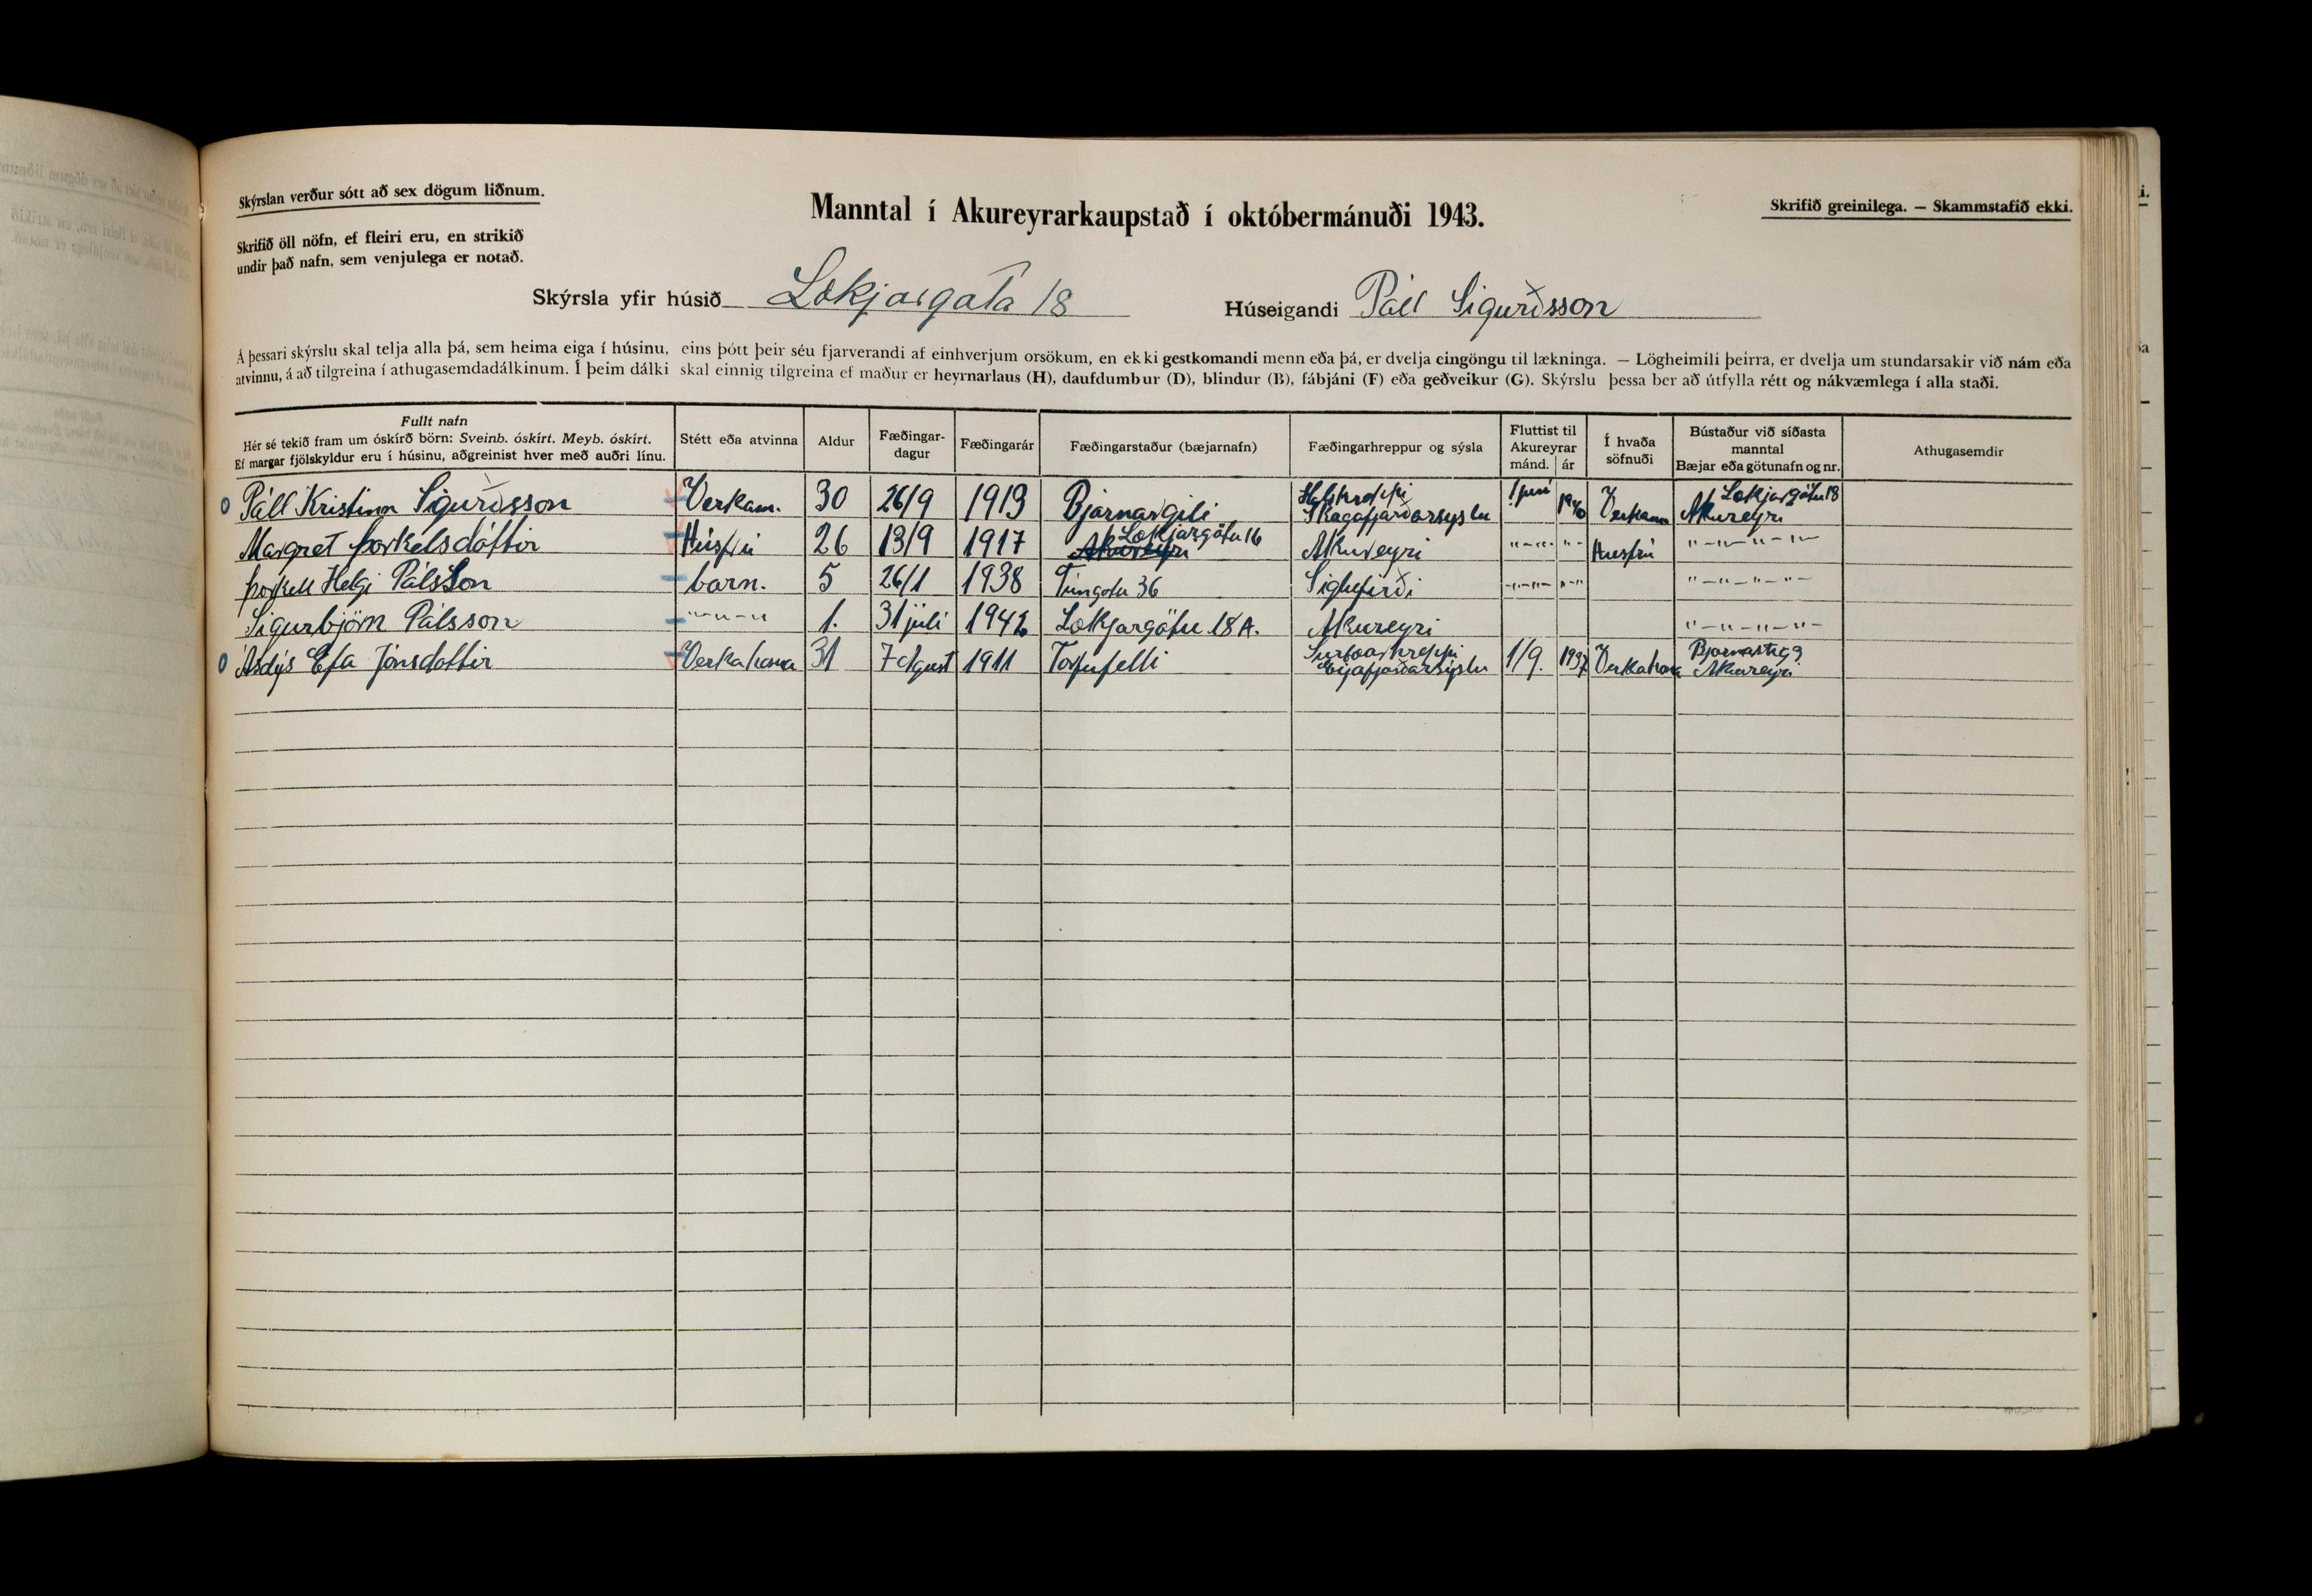 Skýrslan verður sótt að sex dögum liðnum.
Manntal í Akureyrarkaupstað í októbermánuði 1943.
Skrifið greinilega. — Skammstafið ekki.
Skrifið öll nöfn, ef fleiri eru, en strikið
undir það nafn, sem venjulega er notað.
Skýrsla yfir húsið Lækjargata 18 Húseigandi Páll Sigurðsson
Á þessari skýrslu skal telja alla þá, sem heima eiga í húsinu, eins þótt þeir séu fjarverandi af einhverjum orsökum, en ekki gestkomandi menn eða þá, er dvelja eingöngu til lækninga. — Lögheimili þeirra, er dvelja um stundarsakir við nám eða
atvinnu, á að tilgreina í athugasemdadálkinum. Í þeim dálki skal einnig tilgreina ef maður er heyrnarlaus (H), daufdumbur (D), blindur (B), fábjáni (F) eða geðveikur (G). Skýrslu þessa ber að útfylla rétt og nákvæmlega í alla staði.
Fullt nafn
Hér sé tekið fram um óskírð börn: Sveinb. óskírt. Meyb. óskírt.
Ef margar fjölskyldur eru í húsinu, aðgreinist hver með auðri línu.
Stétt eða atvinna
Aldur
Fæðingar-
dagur
Fæðingarár
Fæðingarstaður (bæjarnafn)
Fæðingarhreppur og sýsla
Fluttist til
Akureyrar
mánd. ár
Í hvaða
söfnuði
Bústaður við síðasta
manntal
Bæjar eða götunafn og nr.
Athugasemdir
Páll Kristinn Sigurðsson Verkam. 30 26/9 1913 Bjarnargili Skagafjarðarsyslu 1 juni 1940 Verkam Lækjargötu 18 Akureyri
Margret Þorkelsdóttir Húsfrú 26 13/9 1917 Lækjargötu 16 Akureyri "-"- "- Husfrú "-"-"-"
Þorkell Helgi Pálsson barn. 5 26/1 1938 Túngötu 36 Siglufirði "-"- "-" "-"-"-"-
Sigurbjörn Pálsson "-"-" 1. 31 júli 1942 Lækjargötu 18A. Akureyri "-"-"-"-
Ásdýs Efa Jónsdottir Verkakona 31 7 Agust 1911 Torfufelli Eyjafjarðarsyslu 1/9. 1937 Verkakona Bjarmastíg 9 Akureyri